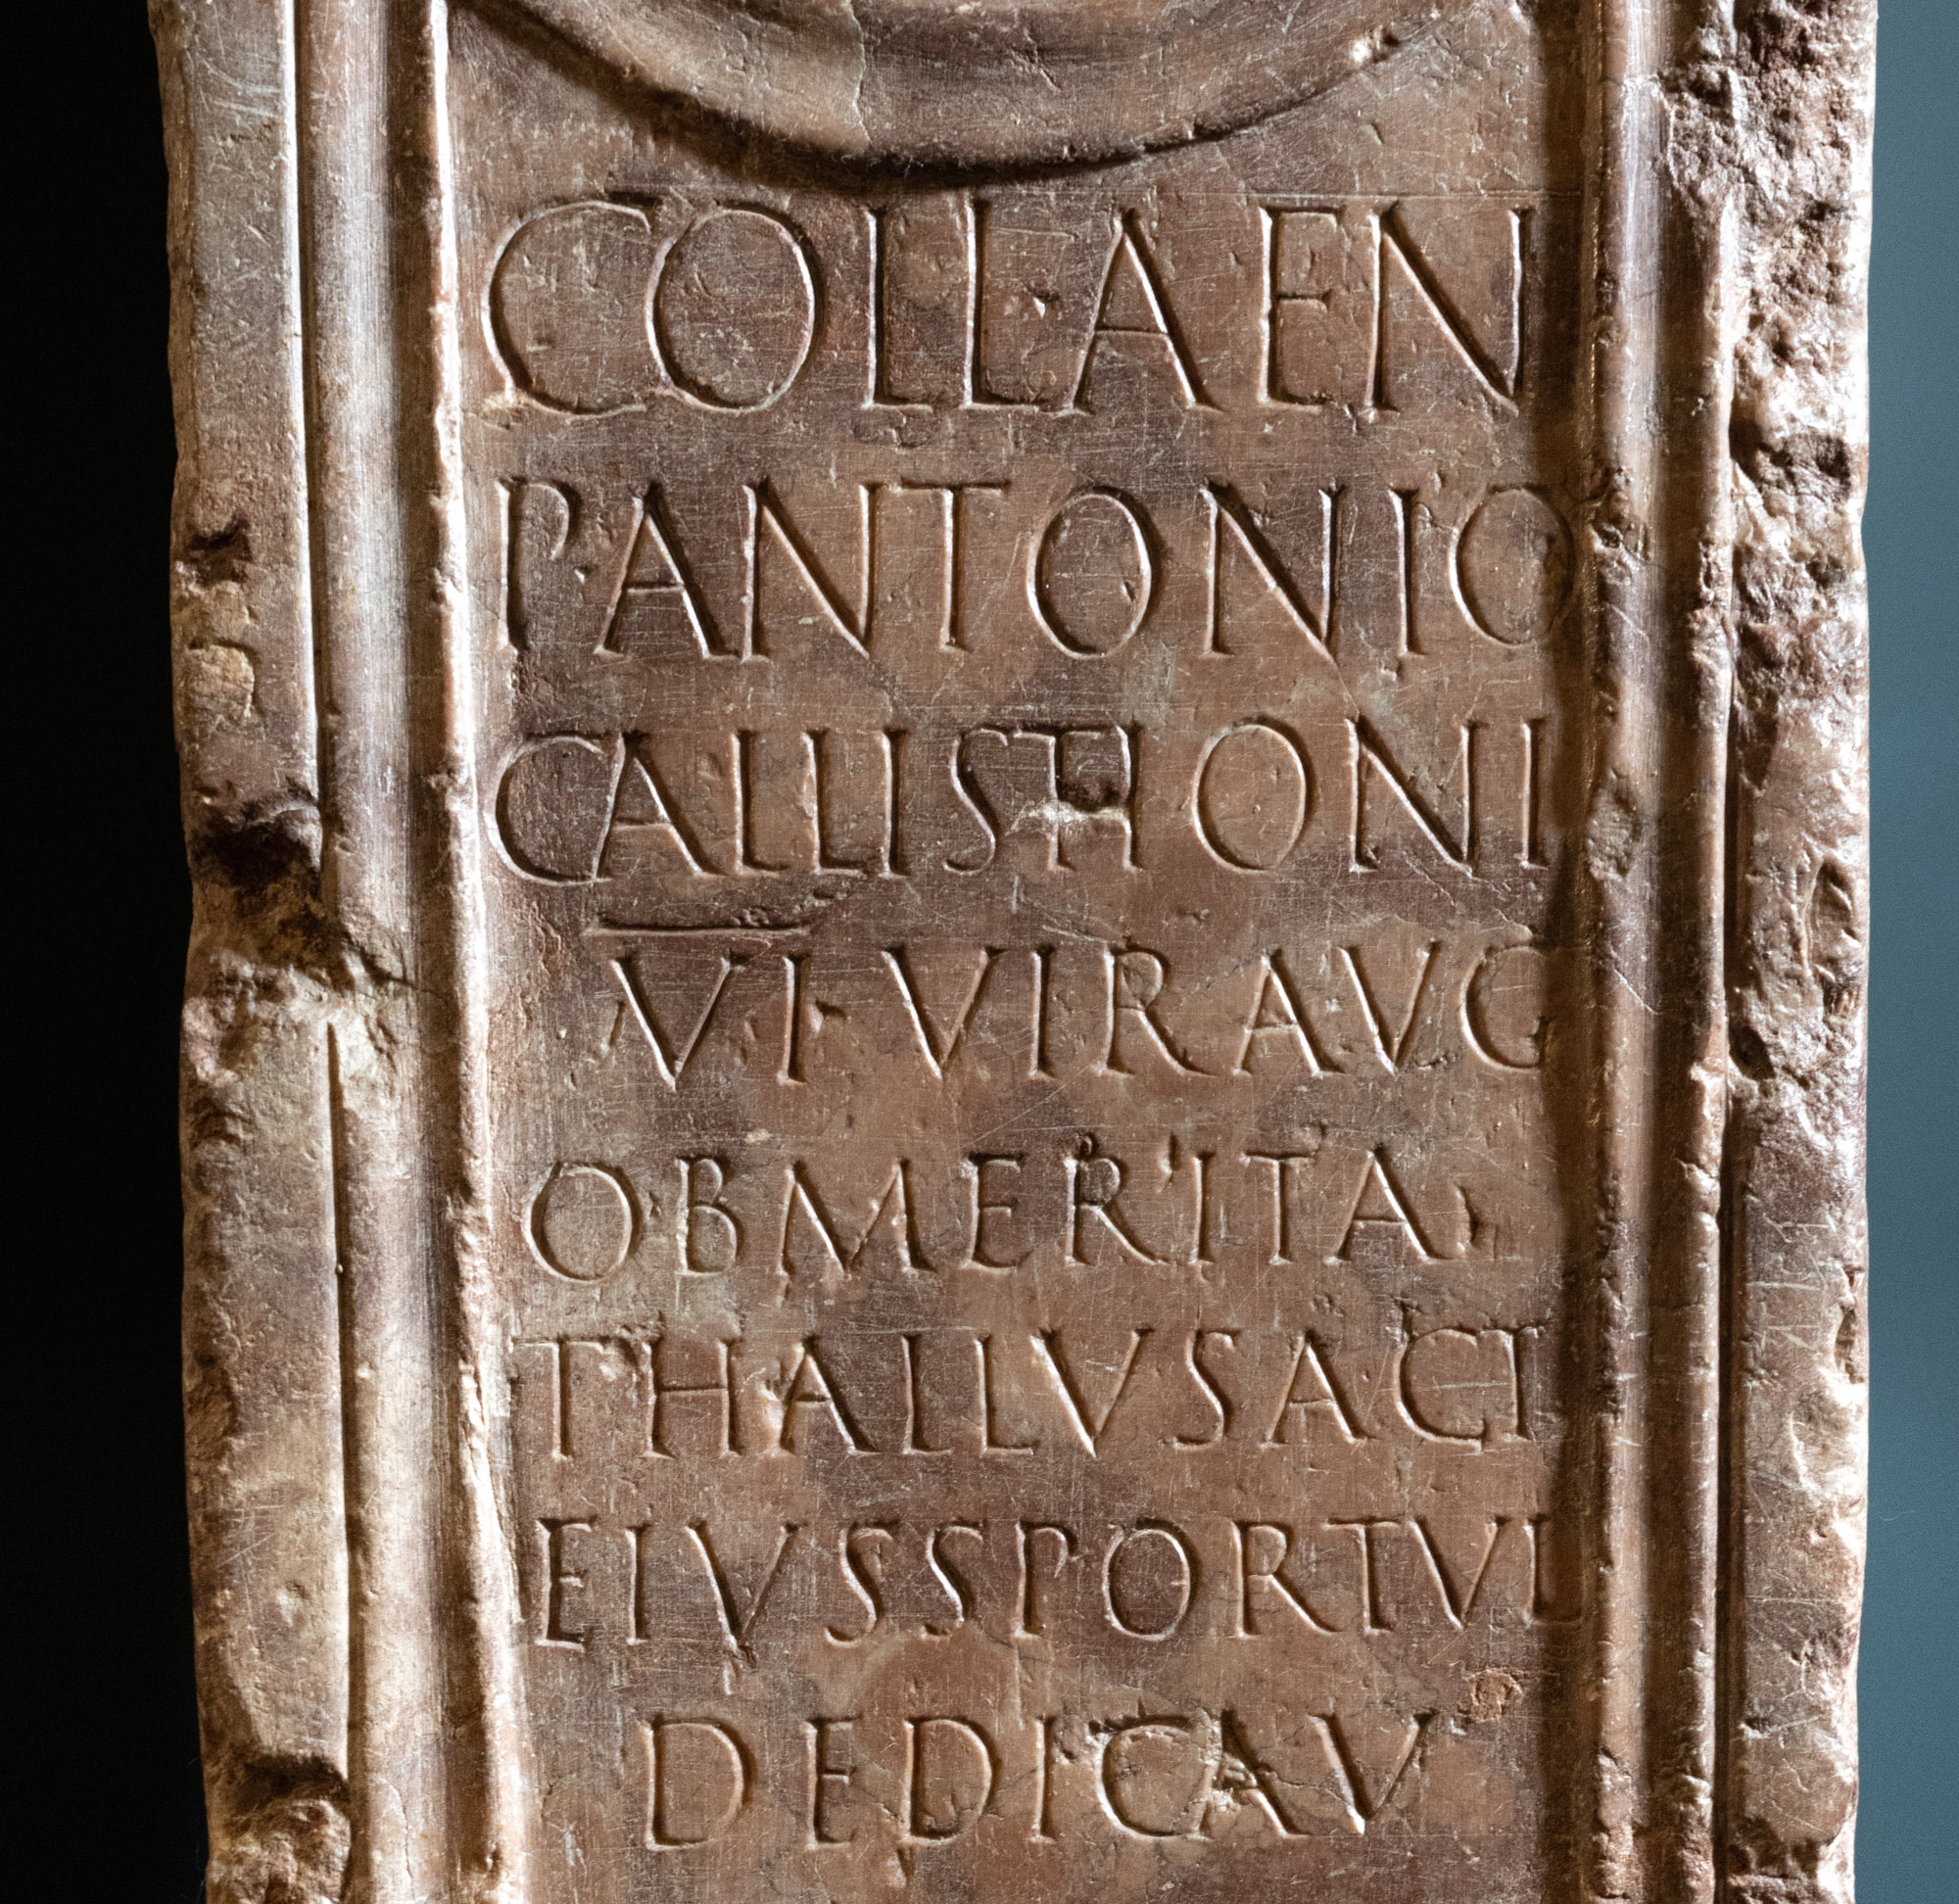 COLL·AEN
P·ANTONIO
CALLISTHONI
VI·VIR AVG
OB MERITA
THALLVS ACT
EIVS SPORTVL
DEDICAV